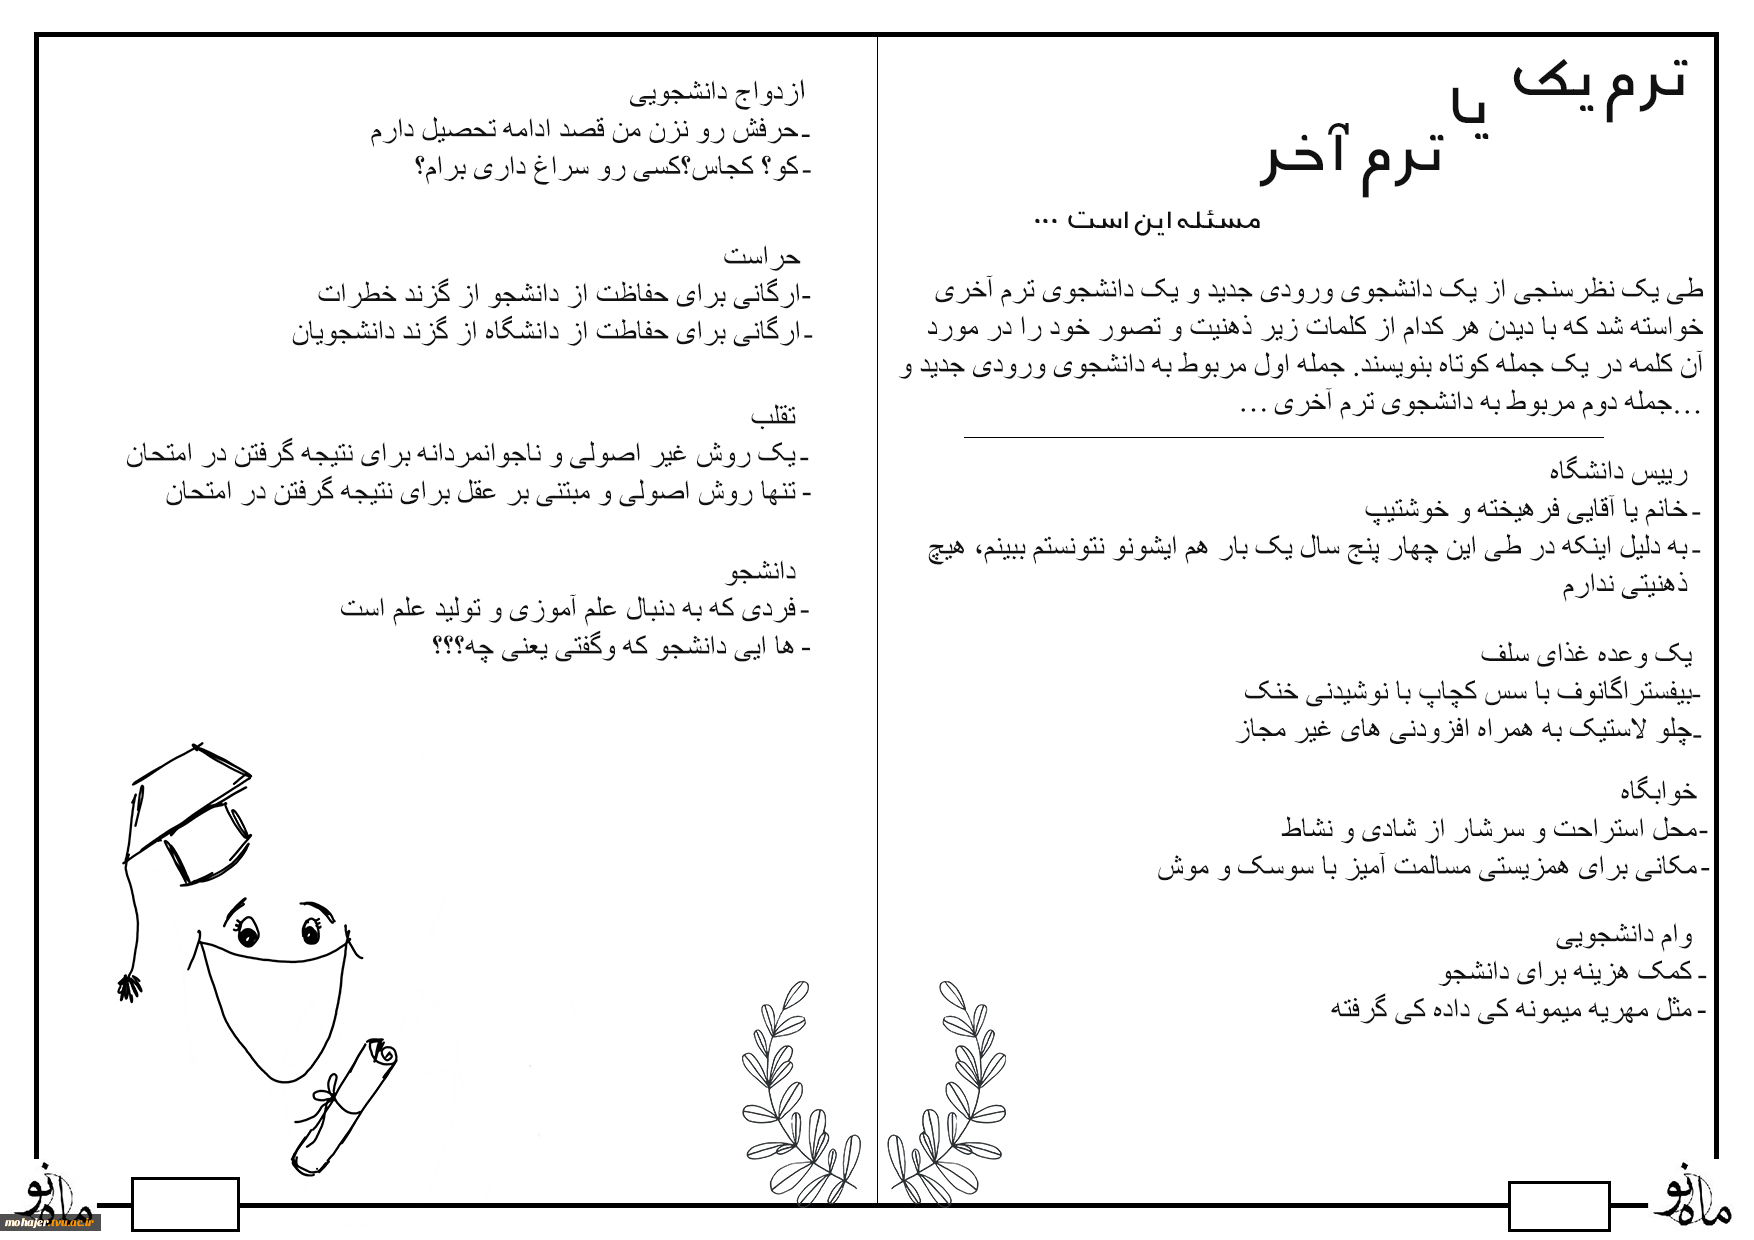 ترم یک
یا
ترم آخر
مسئله این است ...
طی یک نظرسنجی از یک دانشجوی ورودی جدید و یک دانشجوی ترم آخری
خواسته شد که با دیدن هر کدام از کلمات زیر ذهنیت و تصور خود را در مورد
آن کلمه در یک جمله کوتاه بنویسند. جمله اول مربوط به دانشجوی ورودی جدید و
...جمله دوم مربوط به دانشجوی ترم آخری ...
رییس دانشگاه
- خانم یا آقایی فرهیخته و خوشتیپ
- به دلیل اینکه در طی این چهار پنج سال یک بار هم ایشونو نتونستم ببینم، هیچ
ذهنیتی ندارم
یک وعده غذای سلف
-بیفستراگانوف با سس کچاپ با نوشیدنی خنک
-چلو لاستیک به همراه افزودنی های غیر مجاز
خوابگاه
-محل استراحت و سرشار از شادی و نشاط
- مکانی برای همزیستی مسالمت آمیز با سوسک و موش
وام دانشجویی
- کمک هزینه برای دانشجو
- مثل مهریه میمونه کی داده کی گرفته
ازدواج دانشجویی
-حرفش رو نزن من قصد ادامه تحصیل دارم
- کو؟ کجاس؟کسی رو سراغ داری برام؟
حراست
-ارگانی برای حفاظت از دانشجو از گزند خطرات
- ارگانی برای حفاطت از دانشگاه از گزند دانشجویان
تقلب
- یک روش غیر اصولی و ناجوانمردانه برای نتیجه گرفتن در امتحان
- تنها روش اصولی و مبتنی بر عقل برای نتیجه گرفتن در امتحان
دانشجو
- فردی که به دنبال علم آموزی و تولید علم است
- ها ایی دانشجو که وگفتی یعنی چه؟؟؟
ماه نو
ماه نو
mohajer.tvu.ac.ir